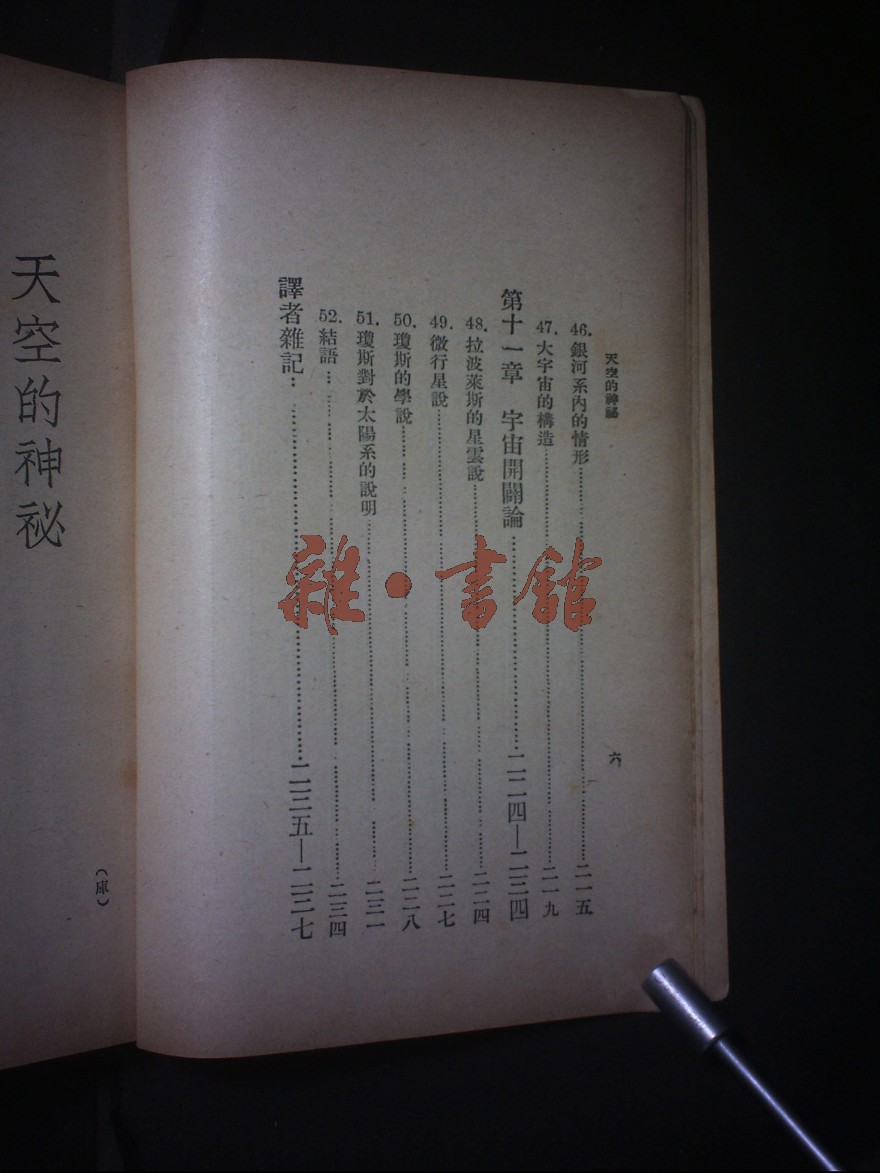 天空的神祕 六
46. 銀河系內的情形……二一五
47. 大宇宙的構造……二一九
第十一章 宇宙開闢論……二二四—二三四
48. 拉波萊斯的星雲說……二二四
49. 微行星說……二二七
50. 瓊斯的學說……二二八
51. 瓊斯對於太陽系的說明……二三一
52. 結語……二三四
譯者雜記……二三五—二三七
天空的神祕
(庫)
雜·書館